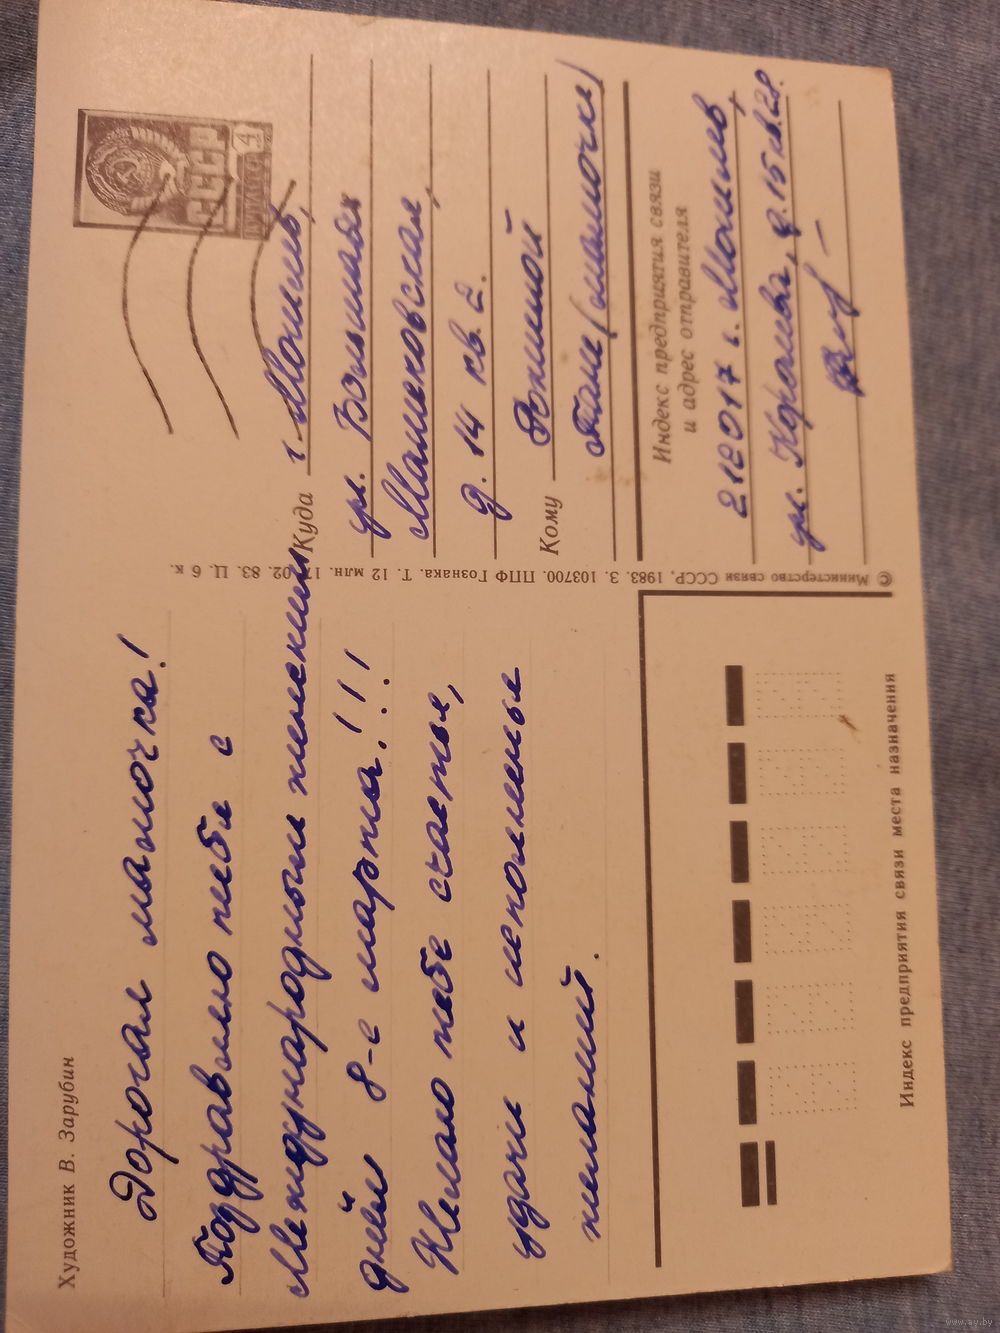 Художник В. Зарубин
Дорогая мамочка!
Поздравляю тебя с
Международным женским
днём 8-е марта!!!
Желаю тебе счастья,
удачи и исполненья
желаний.
© Министерство связи СССР, 1983. З. 103700. ППФ Гознака. Т. 12 млн. 17. 02. 83. Ц. 6 к.
СССР
ПОЧТА
4
Куда г. Могилев,
ул. Большая
Машековская,
д. 14 кв. 2.
Кому
Тане (мамочке)
Индекс предприятия связи
и адрес отправителя
212017 г. Могилев,
ул. Королева, д. 15 кв. 28.
Индекс предприятия связи места назначения
www.ay.by